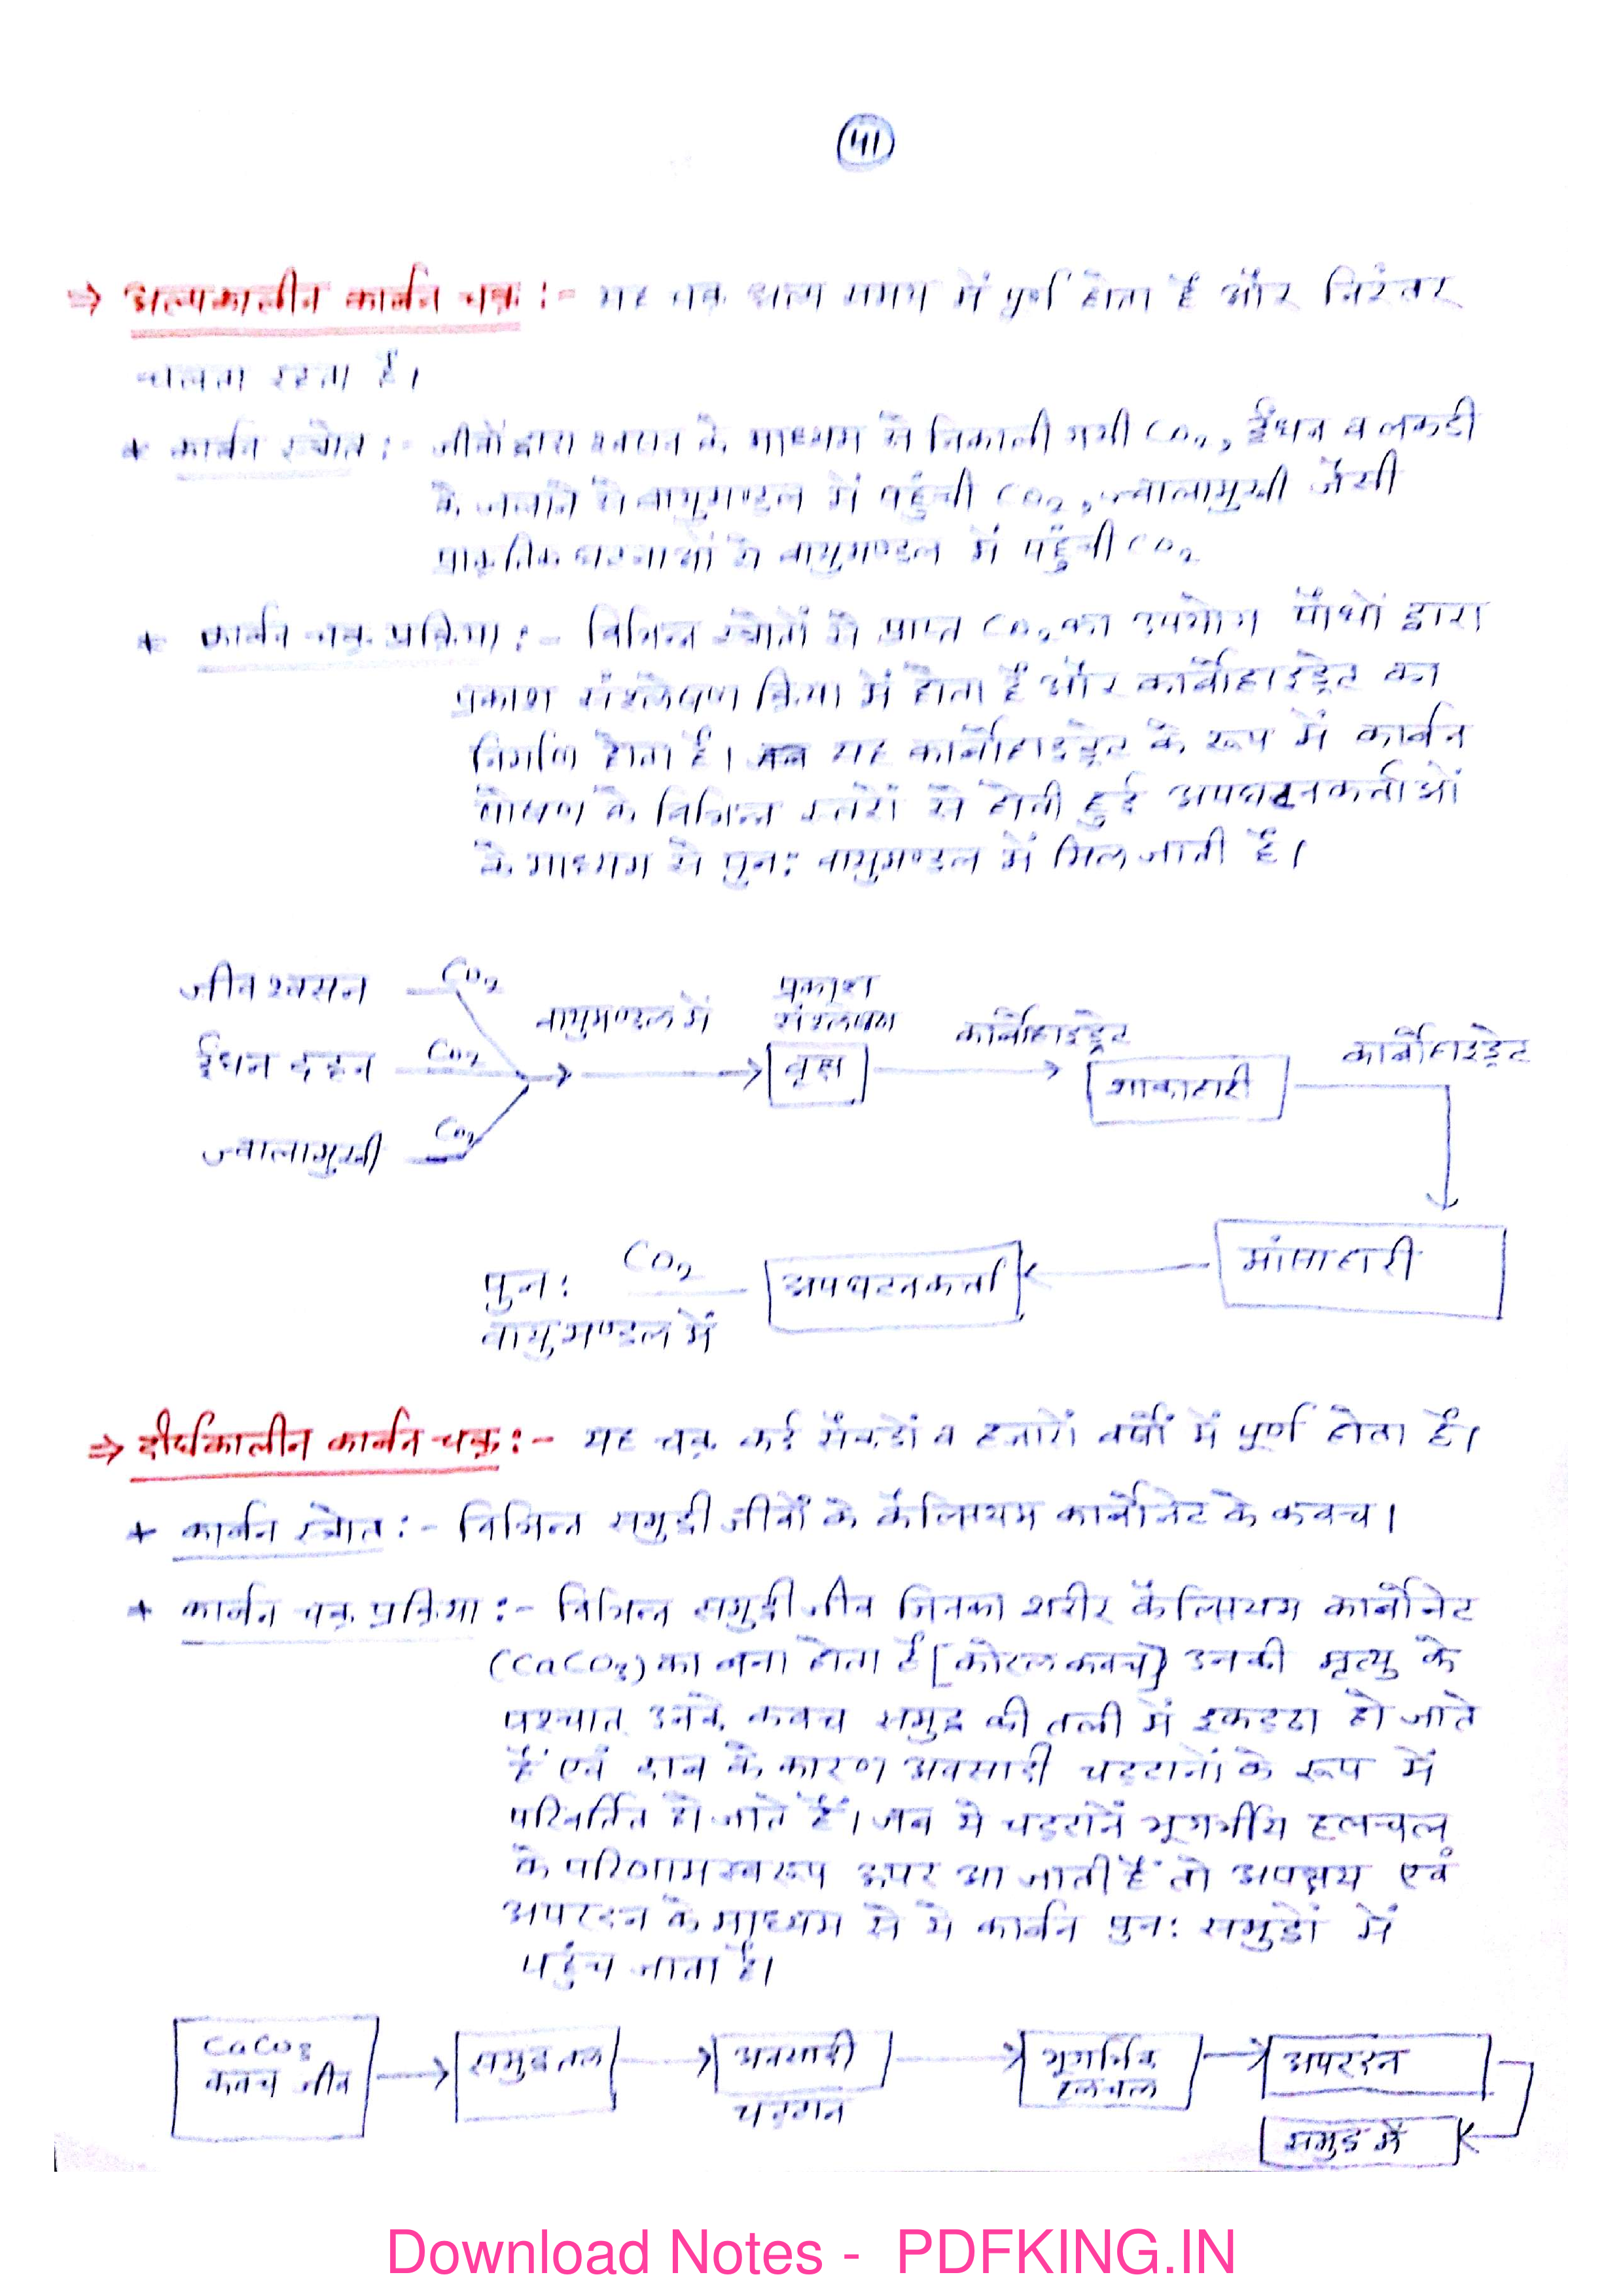 41
⇒ अल्पकालीन कार्बन चक्र :- यह चक्र अल्प समय में पूर्ण होता है और निरंतर
चलता रहता है।
* कार्बन स्त्रोत :- जीवों द्वारा श्वसन के माध्यम से निकाली गयी CO₂, ईंधन व लकडी
के जलाने से वायुमण्डल में पहुंची CO₂, ज्वालामुखी जैसी
प्राकृतिक घटनाओं से वायुमण्डल में पहुँची CO₂
* कार्बन चक्र प्रक्रिया :- विभिन्न स्त्रोतों से प्राप्त CO₂ का उपयोग पौधों द्वारा
प्रकाश संश्लेषण क्रिया में होता है और कार्बोहाइड्रेट का
निर्माण होता है। यह कार्बोहाइड्रेट के रूप में कार्बन
पोषण के विभिन्न स्तरों से होती हुई अपघटनकर्ताओं
के माध्यम से पुनः वायुमण्डल में मिल जाती है।
जीव श्वसन CO₂
वायुमण्डल में
प्रकाश
संश्लेषण
कार्बोहाइड्रेट
कार्बोहाइड्रेट
ईंधन दहन CO₂
वृक्ष
शाकाहारी
ज्वालामुखी CO₂
मांसाहारी
अपघटनकर्ता
CO₂
पुनः
वायुमण्डल में
⇒ दीर्घकालीन कार्बन चक्र :- यह चक्र कई सैकडों व हजारों वर्षों में पूर्ण होता है।
* कार्बन स्त्रोत :- विभिन्न समुद्री जीवों के कैल्सियम कार्बोनेट के कवच।
* कार्बन चक्र प्रक्रिया :- विभिन्न समुद्री जीव जिनका शरीर कैल्सियम कार्बोनेट
(CaCO₃) का बना होता है [कोरल कवच] उनकी मृत्यु के
पश्चात उनके कवच समुद्र की तली में इकट्ठा हो जाते
है एवं दाब के कारण अवसादी चट्टानों के रूप में
परिवर्तित हो जाते हैं। जब ये चट्टाने भूगर्भीय हलचल
के परिणामस्वरूप ऊपर आ जाती है तो अपक्षय एवं
अपरदन के माध्यम से ये कार्बन पुनः समुद्रों में
पहुंच जाता है।
CaCO₃
कवच जीव
समुद्र तल
अवसादी
चट्टान
भूगर्भिक
हलचल
अपरदन
समुद्र में
Download Notes - PDFKING.IN